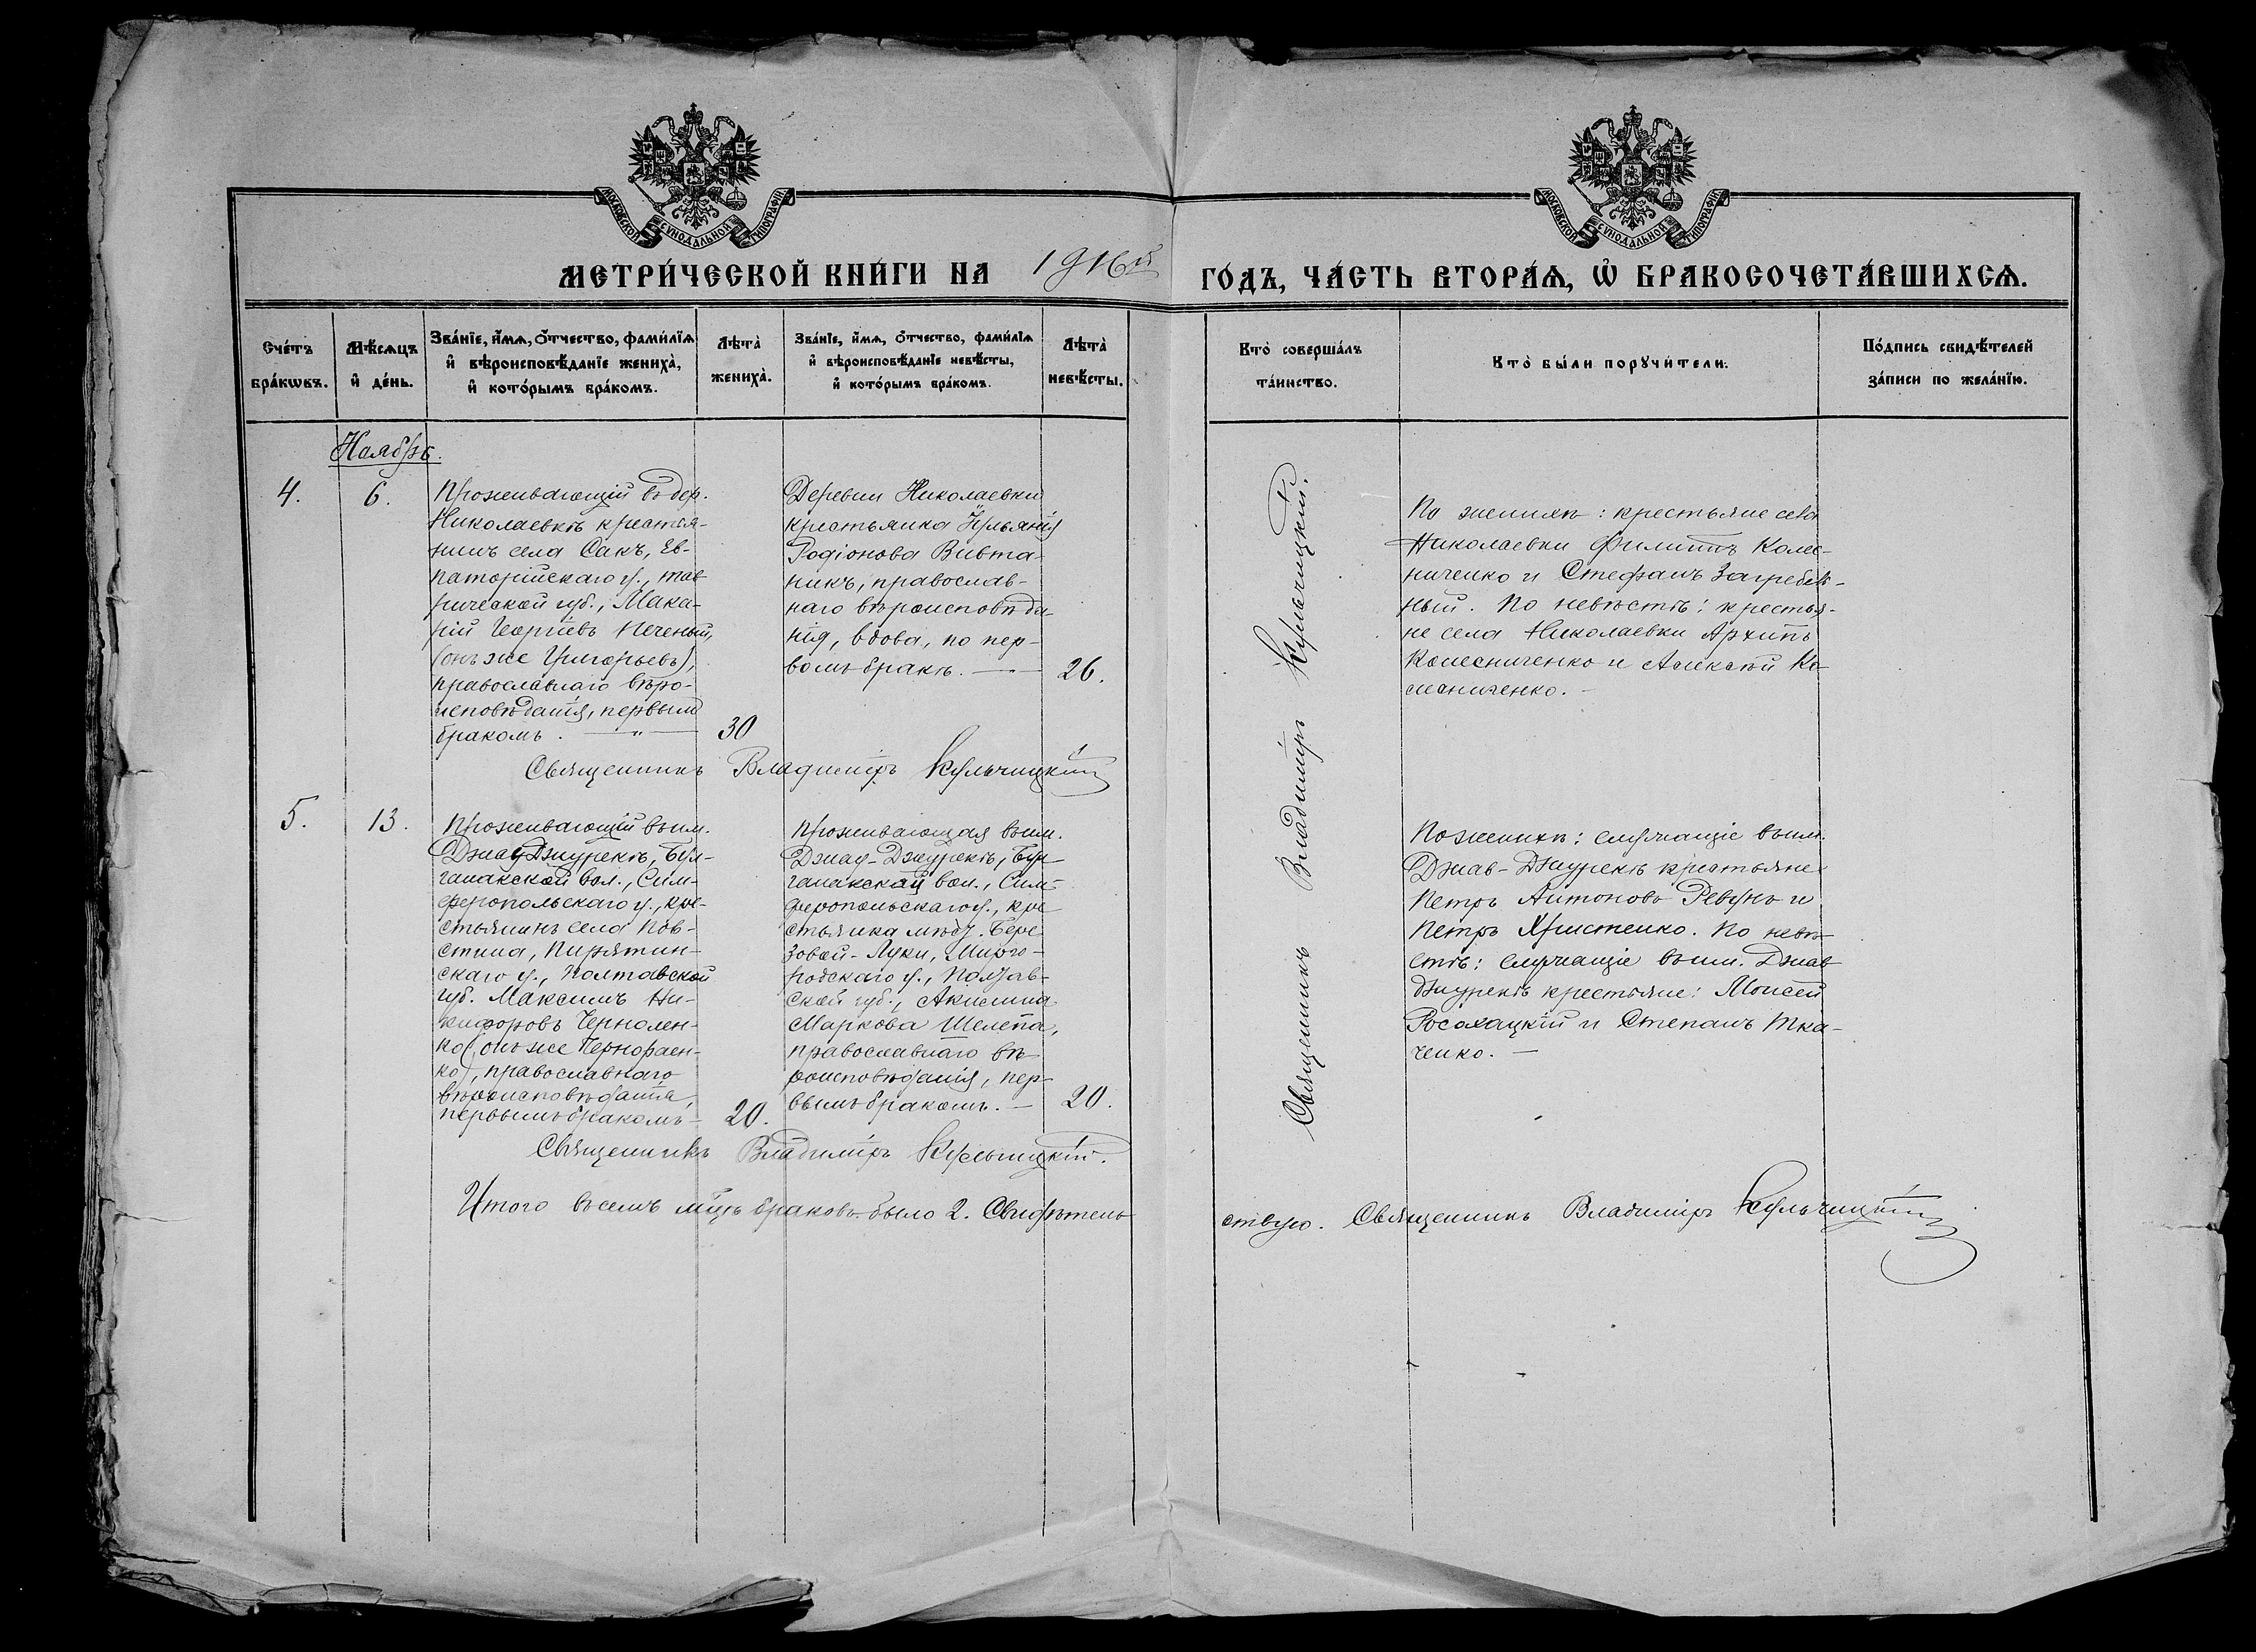 МОСКОВСКОЙ СУНОДАЛЬНОЙ ТИПОГРАФІИ
МОСКОВСКОЙ СУНОДАЛЬНОЙ ТИПОГРАФІИ
МЕТРИ́ЧЕСКОЙ КНИ́ГИ НА 1916й ГО́ДЪ, ЧА́СТЬ ВТОРА́Ѧ, Ѡ҆ БРАКОСОЧЕТА́ВШИХСѦ.
Сче́тъ
бра́кѡвъ.
Мѣ́сѧцъ
и҆ де́нь.
Зва́нїе, и҆́мѧ, о҆́тчество, фами́лїѧ
и҆ вѣроисповѣ́данїе жениха̀,
и҆ кото́рымъ бра́комъ.
Лѣта̀
жениха̀.
Зва́нїе, и҆́мѧ, о҆́тчество, фами́лїѧ
и҆ вѣроисповѣ́данїе невѣ́сты,
и҆ кото́рымъ бра́комъ.
Лѣта̀
невѣ́сты.
Кто̀ соверша́лъ
та́инство.
Кто̀ бы́ли порꙋчи́тели.
По́дпись свидѣ́телей
за́писи по жела́нїю.
Ноябрь.
4.
6.
Проживающій въ дер.
Николаевкѣ крестья-
нинъ села Сакъ, Ев-
паторійскаго у., Тав
рической губ., Мака-
рій Георгіевъ Печеный,
(онъ же Григорьевъ),
православнаго вѣро-
исповѣданія, первымъ
бракомъ. — " —
30
Деревни Николаевки
крестьянка Іульянія
Родіонова Вивта-
никъ, православ-
наго вѣроисповѣда-
нія, вдова, по пер-
вомъ бракѣ. —
26.
Священникъ Владиміръ Кульчицкій
По женихѣ: крестьяне села
Николаевки Филиппъ Колес-
ниченко и Стефанъ Загребель-
ный. По невѣстѣ: крестья-
не села Николаевки Архипъ
Колесниченко и Алексѣй Ко
ниченко. —
5.
13.
Проживающій въ им.
Джав-Джурекъ, Бул-
ганакской вол., Сим-
феропольскаго у., кре-
стьянинъ села Пов-
стина, Пирятин-
скаго у., Полтавской
губ. Максимъ Ни-
кифоровъ Чернолен-
ко (онъ же
ко), православнаго
вѣроисповѣданія,
первымъ бракомъ —
20.
Проживающая въ им.
Джав-Джурекъ, Бул-
ганакской вол., Сим-
феропольскаго у., кре
стьянка мѣст. Бере-
зовой-Луки, Мирго-
родскаго у., Полтав-
ской губ., Акилина
Маркова Шелепа,
православнаго вѣ-
роисповѣданія, пер-
вымъ бракомъ. —
20.
Священникъ Владиміръ Кульчицкій.
Священникъ Владиміръ Кульчицкій.
По женихѣ: служащіе въ им.
Джав-Джурекъ крестьяне
Петръ Антоновъ Ревунъ и
Петръ Христенко. По невѣ-
стѣ: служащіе въ им. Джав
Джурекъ крестьяне: Моисей
Росохацкій и Степанъ Тка-
ченко. —
Итого въ семъ м-цѣ браковъ было 2. Свидѣтель-
ствую. Священникъ Владиміръ Кульчицкій